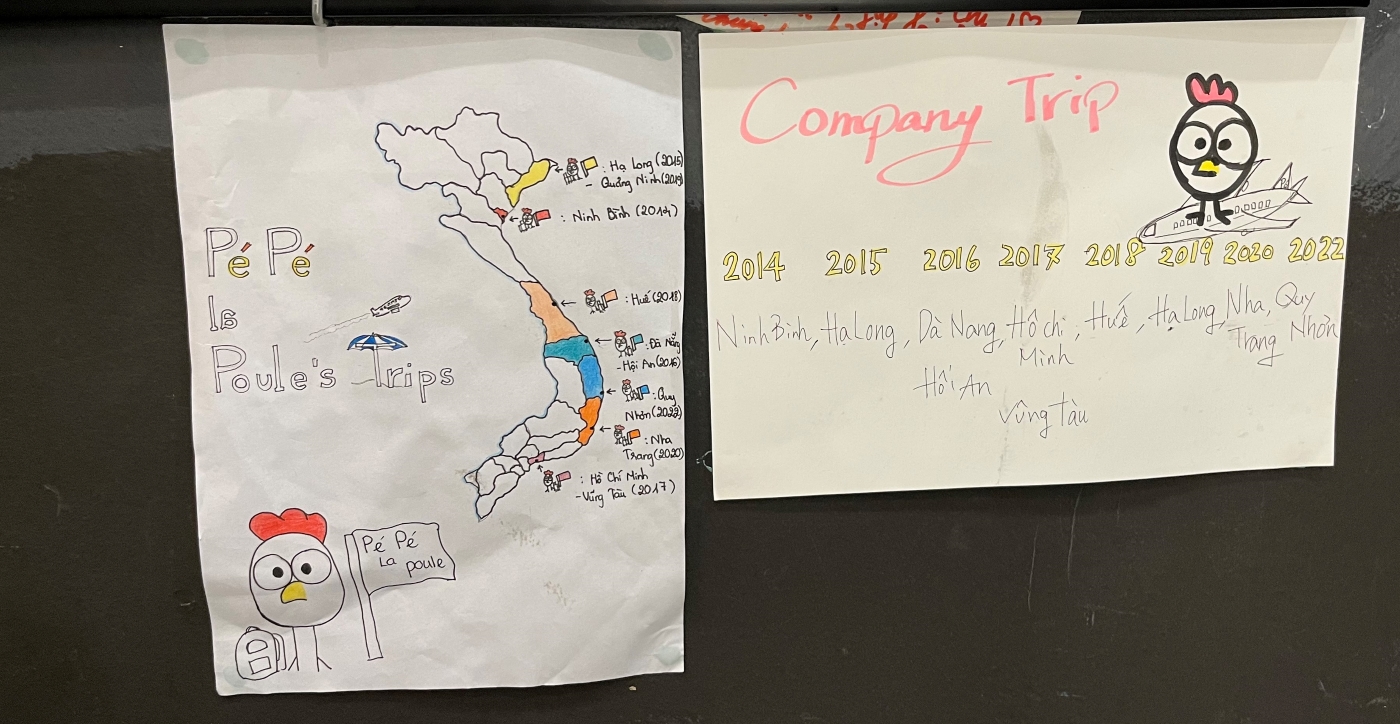 Pé Pé
la
Poule's Trips
: Hạ Long (2015)
- Quảng Ninh (2019)
: Ninh Bình (2014)
: Huế (2018)
: Đà Nẵng
- Hội An (2016)
: Quy
Nhơn (2022)
: Nha
Trang (2020)
: Hồ Chí Minh
- Vũng Tàu (2017)
Pé Pé
La poule
Company Trip
2014 2015 2016 2017 2018 2019 2020 2022
Ninh Bình, Hạ Long, Dà Nang, Hồ chi, Huế, Hạ Long, Nha, Quy
Minh Trang Nhơn
Hồi An
Vũng tàu